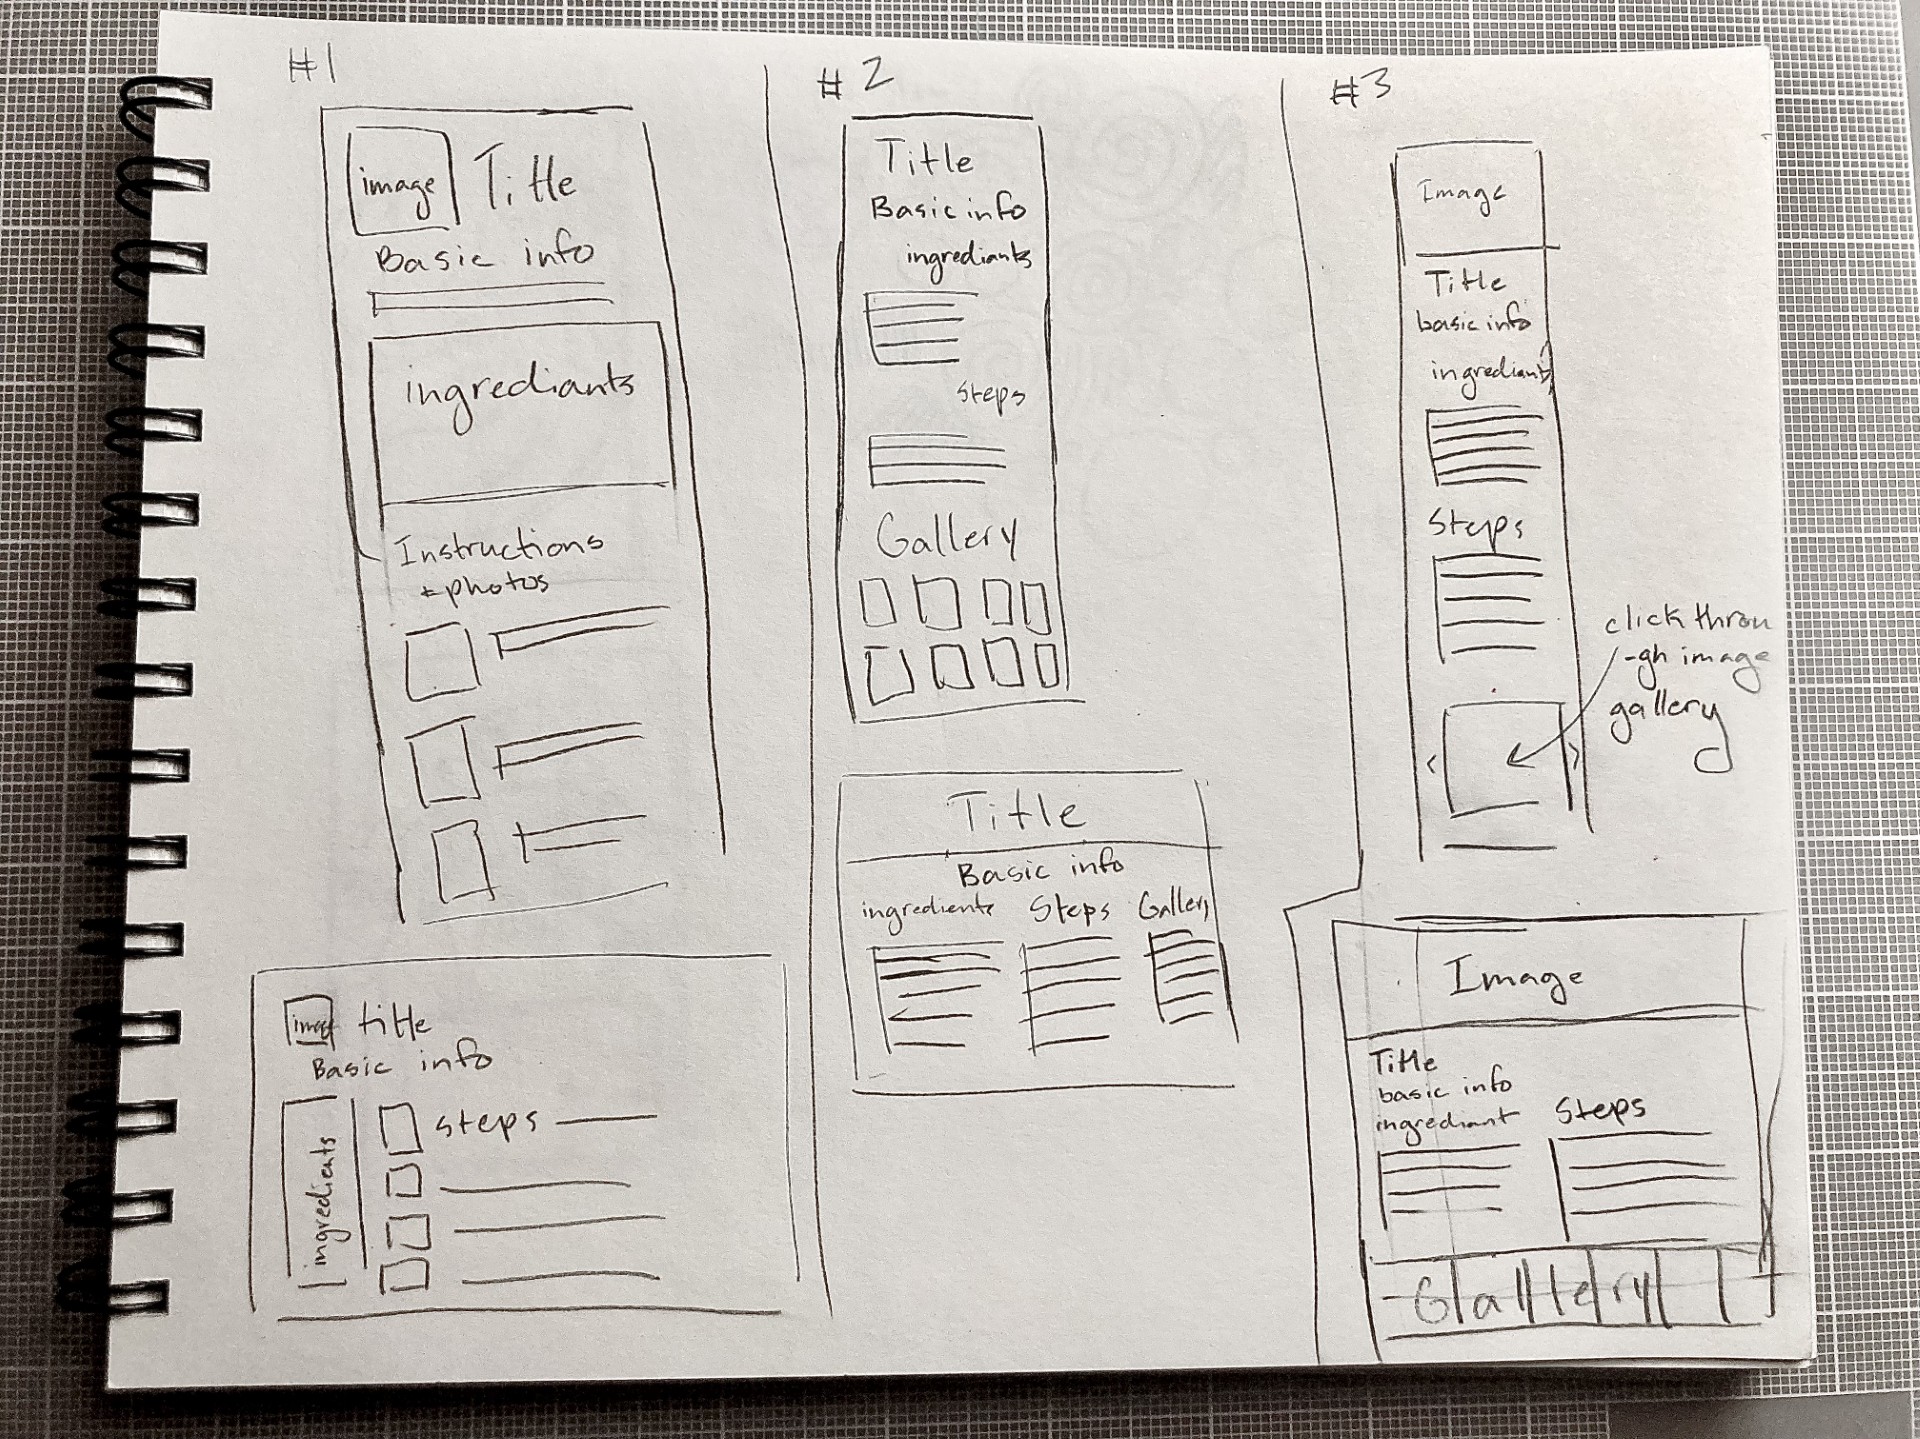 #1
image
Title
Basic info
ingrediants
Instructions
+photos
image
title
Basic info
ingredients
steps
#2
Title
Basic info
ingrediants
Steps
Gallery
Title
Basic info
ingredients Steps Gallery
#3
Image
Title
basic info
ingrediants
Steps
click throu
-gh image
gallery
Image
Title
basic info
ingrediant
Steps
Gallery